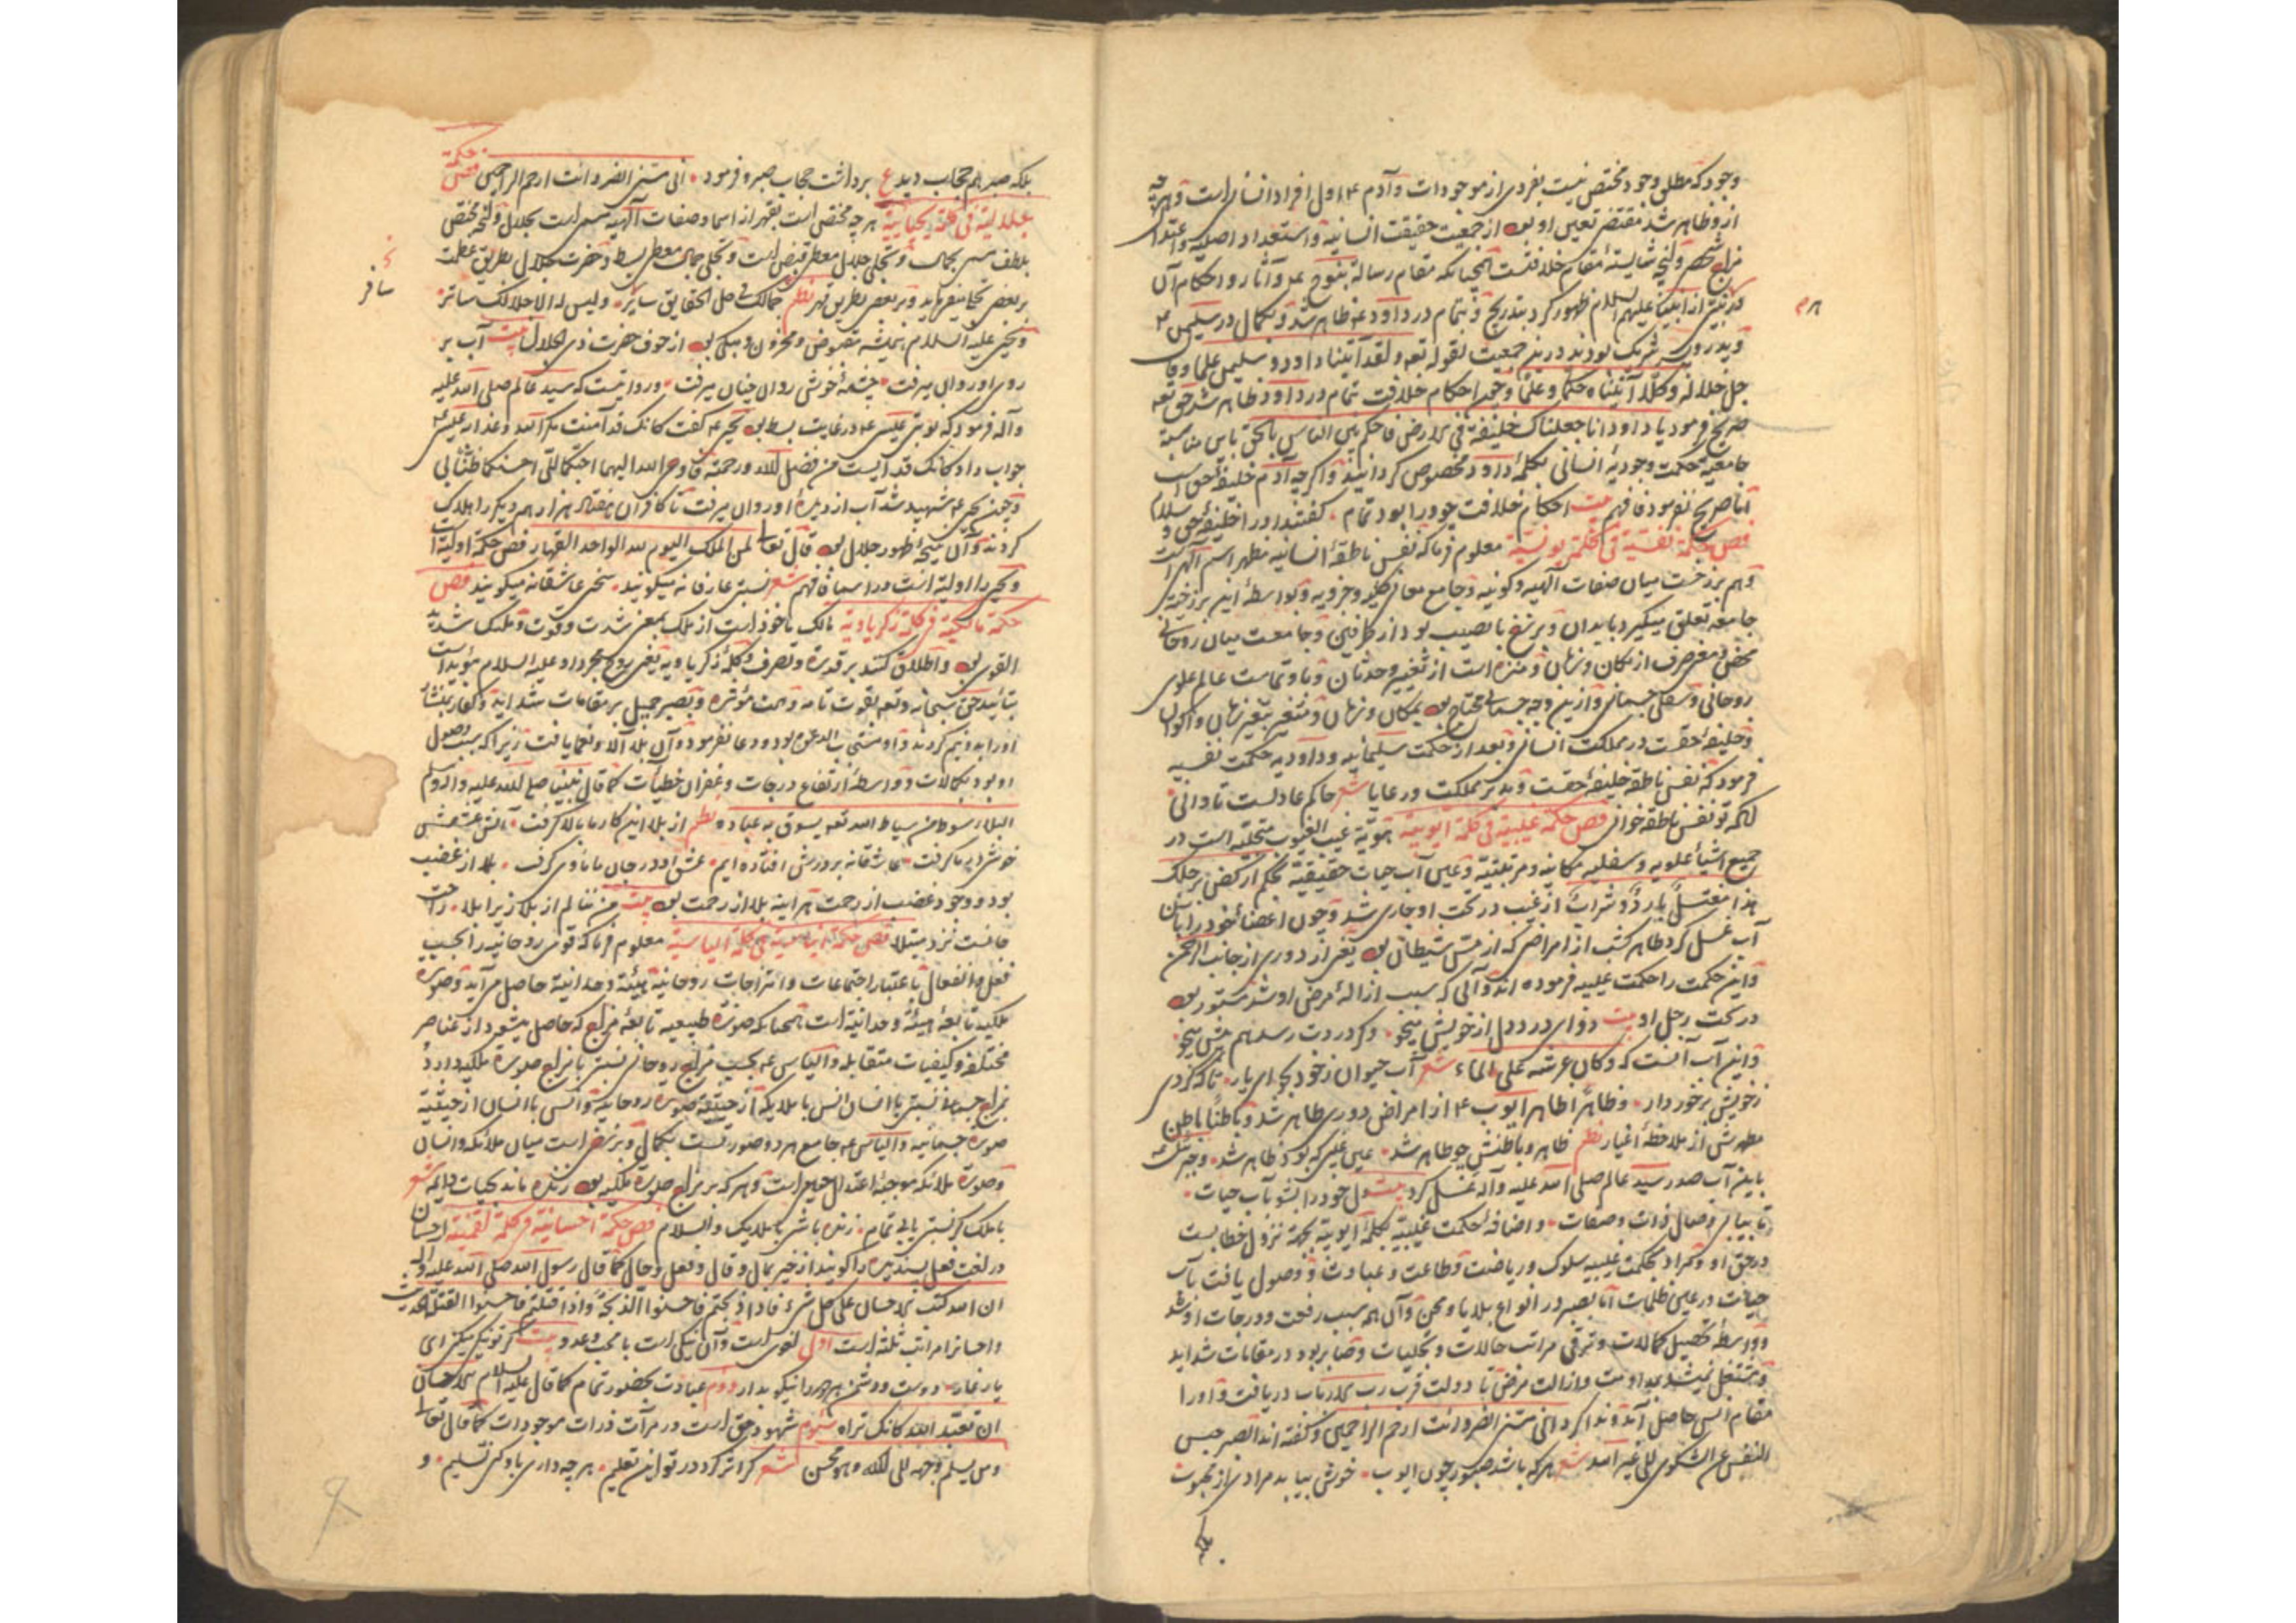 وجود که مطلق وجود مختص نیست بفردی از موجودات و آدم ع اول افراد انسانی است و هرچه
ازو ظاهر شد مقتضی تعین او بود از جمعیت حقیقت انسانیه و استعداد اصلیه و اعتدال
مزاج شخصی و لنج شایسته مقام خلافتست همچنانکه مقام رسالة بنوح ع و آثار و احکام آن
از انبیا علیهم السلام ظهور کرد بتدریج و بتمام در داود ع ظاهر شد و بکمال در سلیمن ع
و پدر وی شریک بودند درین جمعیت لقوله تعه و لقد آتینا داود و سلیمن علما و قال
جل جلاله و کلا آتیناه حکما و علما و چون احکام خلافت تمام در داود ظاهر شد حق تعه
صریح فرمود یا داود انا جعلناک خلیفة فی الارض فاحکم بین الناس بالحق باین مناسبة
جامعیة حکمت وجودیه انسانی بکلمه داود مخصوص گردانید و اگرچه آدم خلیفه حق است
اما صریح نفرمود فافهم بیت احکام خلافت چو ورا بود تمام گفتند اورا خلیفه حق و سلام
فص حکمة نفسیة فی کلمة یونسیة معلوم فرما که نفس ناطقه انسانیه مظهر اسم الهی است
و هم برزخست میان صفات الهیه و کونیه و جامع معانی کلیه و جزویه و بواسطه این برزخیت
جامعه تعلق میگیرد بابدان و برزخ با نصیب بود از طرفین و جامعست میان روحانی
محض و معنی صرف از مکان و زمان و منزه است از تغییر و حدثان و با وتماست عالم علوی
روحانی و سفلی جسمانی و ازین وجه جسمانی محتاج بود بمکان و زمان و متغیر بتغیر زمان و اکوان
و خلیفه حقست در مملکت انسانی و بعد از حکمت سلیمانیه و داودیه حکمت نفسیه
فرمود که نفس ناطقه خلیفه حقست و مدبر مملکت و رعایا شعر حاکم عادلست تا دانی
لکه تو نفس ناطقه خوانی فص حکمة غیبیة فی کلمة ایوبیة هویة غیب الغیوب متجلیه است در
جمیع اشیأ علویه و سفلیه مکانیه و مرتبتیه و عین آب حیات حقیقیة بحکم ارکض برجلک
هذا مغتسل بارد و شراب از غیب در تحت او جاری شد و چون اعضاء خود را باین
آب غسل کرد طاهر گشت از امراضی که از مس شیطانی بود یعنی از دوری از جانب الرحمن
و این حکمت را حکمت غیبیه فرموده اند و آبی که سبب ازاله مرض او شد مستور بود
در تحت رجل او بیت دوای درد دل از خویش میجو و گر دردت رسد هم پیش میجو
و این آب آنست که و کان عرشه علی الماء شعر آب حیوان ز خود بجو ای یار تا که گردی
ز خویش برخوردار و ظاهر اطاهر ایوب ع از امراض دوری ظاهر شد و باطنا باطن
مطهرش از ملاحظه اغیار نظم ظاهر و باطنش چو طاهر شد عین غیبی که بود ظاهر شد و جبرئیل
باین آب صدر سید عالم صلی الله علیه و آله غسل کرد بیت دل خود را بشو بآب حیات
تا بیابی وصال ذات و صفات و اضافه حکمت غیبیه بکلمه ایوبیه بجهة نزول خطابست
در حق او و مراد بحکمت غیبیه سلوک و ریاضت و طاعت و عبادت و وصول یافت بآب
حیات در عین ظلمات اما بصبر در انواع بلایا و محن و آن هم سبب رفعت و درجات او شد
و واسطه تحصیل کمالات و ترقی مراتب حالات و تجلیات و صابر بود در مقامات شداید
و مشتغل نمیشد بمداومت و ازالت مرض تا دولت قرب رب الارباب دریافت و او را
مقام انس حاصل آمد و ندا کرد انی مسنی الضر و انت ارحم الراحمین و گفته اند الصبر حبس
النفس عن الشکوی الی غیر الله شعر هر که باشد صبور چون ایوب خوش بیابد مرادی از محبوب
بلکه
بلکه صبر هم حجاب دید ع برداشت حجاب صبر و فرمود انی مسنی الضر و انت ارحم الراحمین فص حکمة
جلالیة فی کلمة یحیاییة هرچه مختص است بقهر از اسما و صفات الهیه مسمی است بجلال و آنچه مختص
بلطف مسمی بجمال و تجلی جلال معطی قبض است و تجلی جمال معطی بسط و حضرت جلال بطریق عظمت
بر بعضی تجلی میفرماید و بر بعضی بطریق قهر نظم جمالک فی کل الحقایق سایر و لیس له الا جلالک ساتر
سافر
و یحیی علیه السلام همیشه مقبوض و محزون و متبکی بود از خوف حضرت ذی الجلال بیت آب بر
روی او روان میرفت چشمه خوشی روان چنان میرفت و روایتست که سید عالم صلی الله علیه
و آله فرمود که نوبتی عیسی ع در غایت بسط بود یحیی ع گفت کانک قد آمنت مکر الله و عذابه عیسی ع
جواب داد کانک قد ایست من فضل الله و رحمته فاوحی الله الیهما احبکما الی احسنکما ظنا بی
و چون یحیی ع شهید شد آب از دیده او روان میرفت تا کافران هفتاد هزار همدیگر را هلاک
کردند و آن نتیجه ظهور جلال بود قال تعالی لمن الملک الیوم لله الواحد القهار فص حکمة اولیة است
و یحیی را اولیة است در اسما فافهم شعر نسبتی عارفانه میگویند سخن عاشقانه میگویند فص
حکمة مالکیة فی کلمة زکریاویة مالک ماخوذ است از ملک بمعنی شدت و قوت و ملیک شدید
القوی بود و اطلاق کنند بر قدرة و تصرف و کلمه زکریاویه یعنی روح مجرد او علیه السلام موید است
بتائید حق سبحانه و تعه بقوت تامه و همت موثره و بصبر جمیل بر مقامات شداید و کفار بمنشار
او را بدو نیم کردند و او مستجاب الدعوة بود و دعا نفرمود و آن بلا آلا و نعما یافت زیرا که سبب وصول
او بود بکمالات و واسطه ارتفاع درجات و غفران خطیئات کما قال نبینا صلی الله علیه و آله و سلم
البلاء سوط من سیاط الله تعه یسوق به عباده نظم از بلا این کار ما بالا گرفت آتش عشقش
خوشی در ما گرفت عاشقانه بر درش افتاده ایم عشق او در جان ما ماوی گرفت بلا از غضب
بود و وجود غضب از رحمت هر آینه بلا از رحمت بود بیت من ننالم از بلا زیرا بلا راحت
جانست نزد مبتلا فص حکمة ایناسیة فی کلمة الیاسیة معلوم فرما که قوی روحانیه را بحسب
فعل و انفعال باعتبار اجتماعات و امتزاجات روحانیة هیئة وحدانیة حاصل می آید و صورة
ملکیه تابعه هیئة وحدانیة است همچنانکه صورة طبیعیه تابعه مزاج که حاصل میشود از عناصر
مختلفه و کیفیات متقابله و الیاس ع بحسب مزاج روحانی نسبتی با مزاج صورة ملکیه دارد و
بمزاج جسمانی نسبتی با انسان انس با ملایکه از حیثیة صورة روحانیة و انسی با انسان از حیثیة
صورة جسمانیة و الیاس ع جامع هر دو صورتست بکمال و برزخی است میان ملائکه و انسان
و صورة ملائکه موجبه اعتدال جمیع است و هر که بر مزاج صورة ملکیه بود زنده ماند بحیات دایمه شعر
با ملک گر نسبتی یابی تمام زنده باشی با ملایک و السلام فص حکمة احسانیة فی کلمة لقمنیة احسان
در لغت فعل پسندیده را گویند از خیر بمال و قال و فعل و حال کما قال رسول الله صلی الله علیه و آله
ان الله کتب الاحسان علی کل شیء فاذا ذبحتم فاحسنوا الذبحة و اذا قتلتم فاحسنوا القتلة الحدیث
و احسانرا مراتب ثلثه است اول لغوی است و آن نیکی است با محب و عدو بیت گر تو نیکی میکنی ای
یار غار دوست و دشمن هر دو را نیکو بدار دوم عبادت بحضور تمام کما قال علیه السلام الاحسان
ان تعبد الله کانک تراه سیوم شهود حق است در مرآت ذرات موجودات کما قال تعالی
و من یسلم وجهه الی الله و هو محسن شعر گر اثر کرد در تو این تعلیم هر چه داری باو کنی تسلیم و